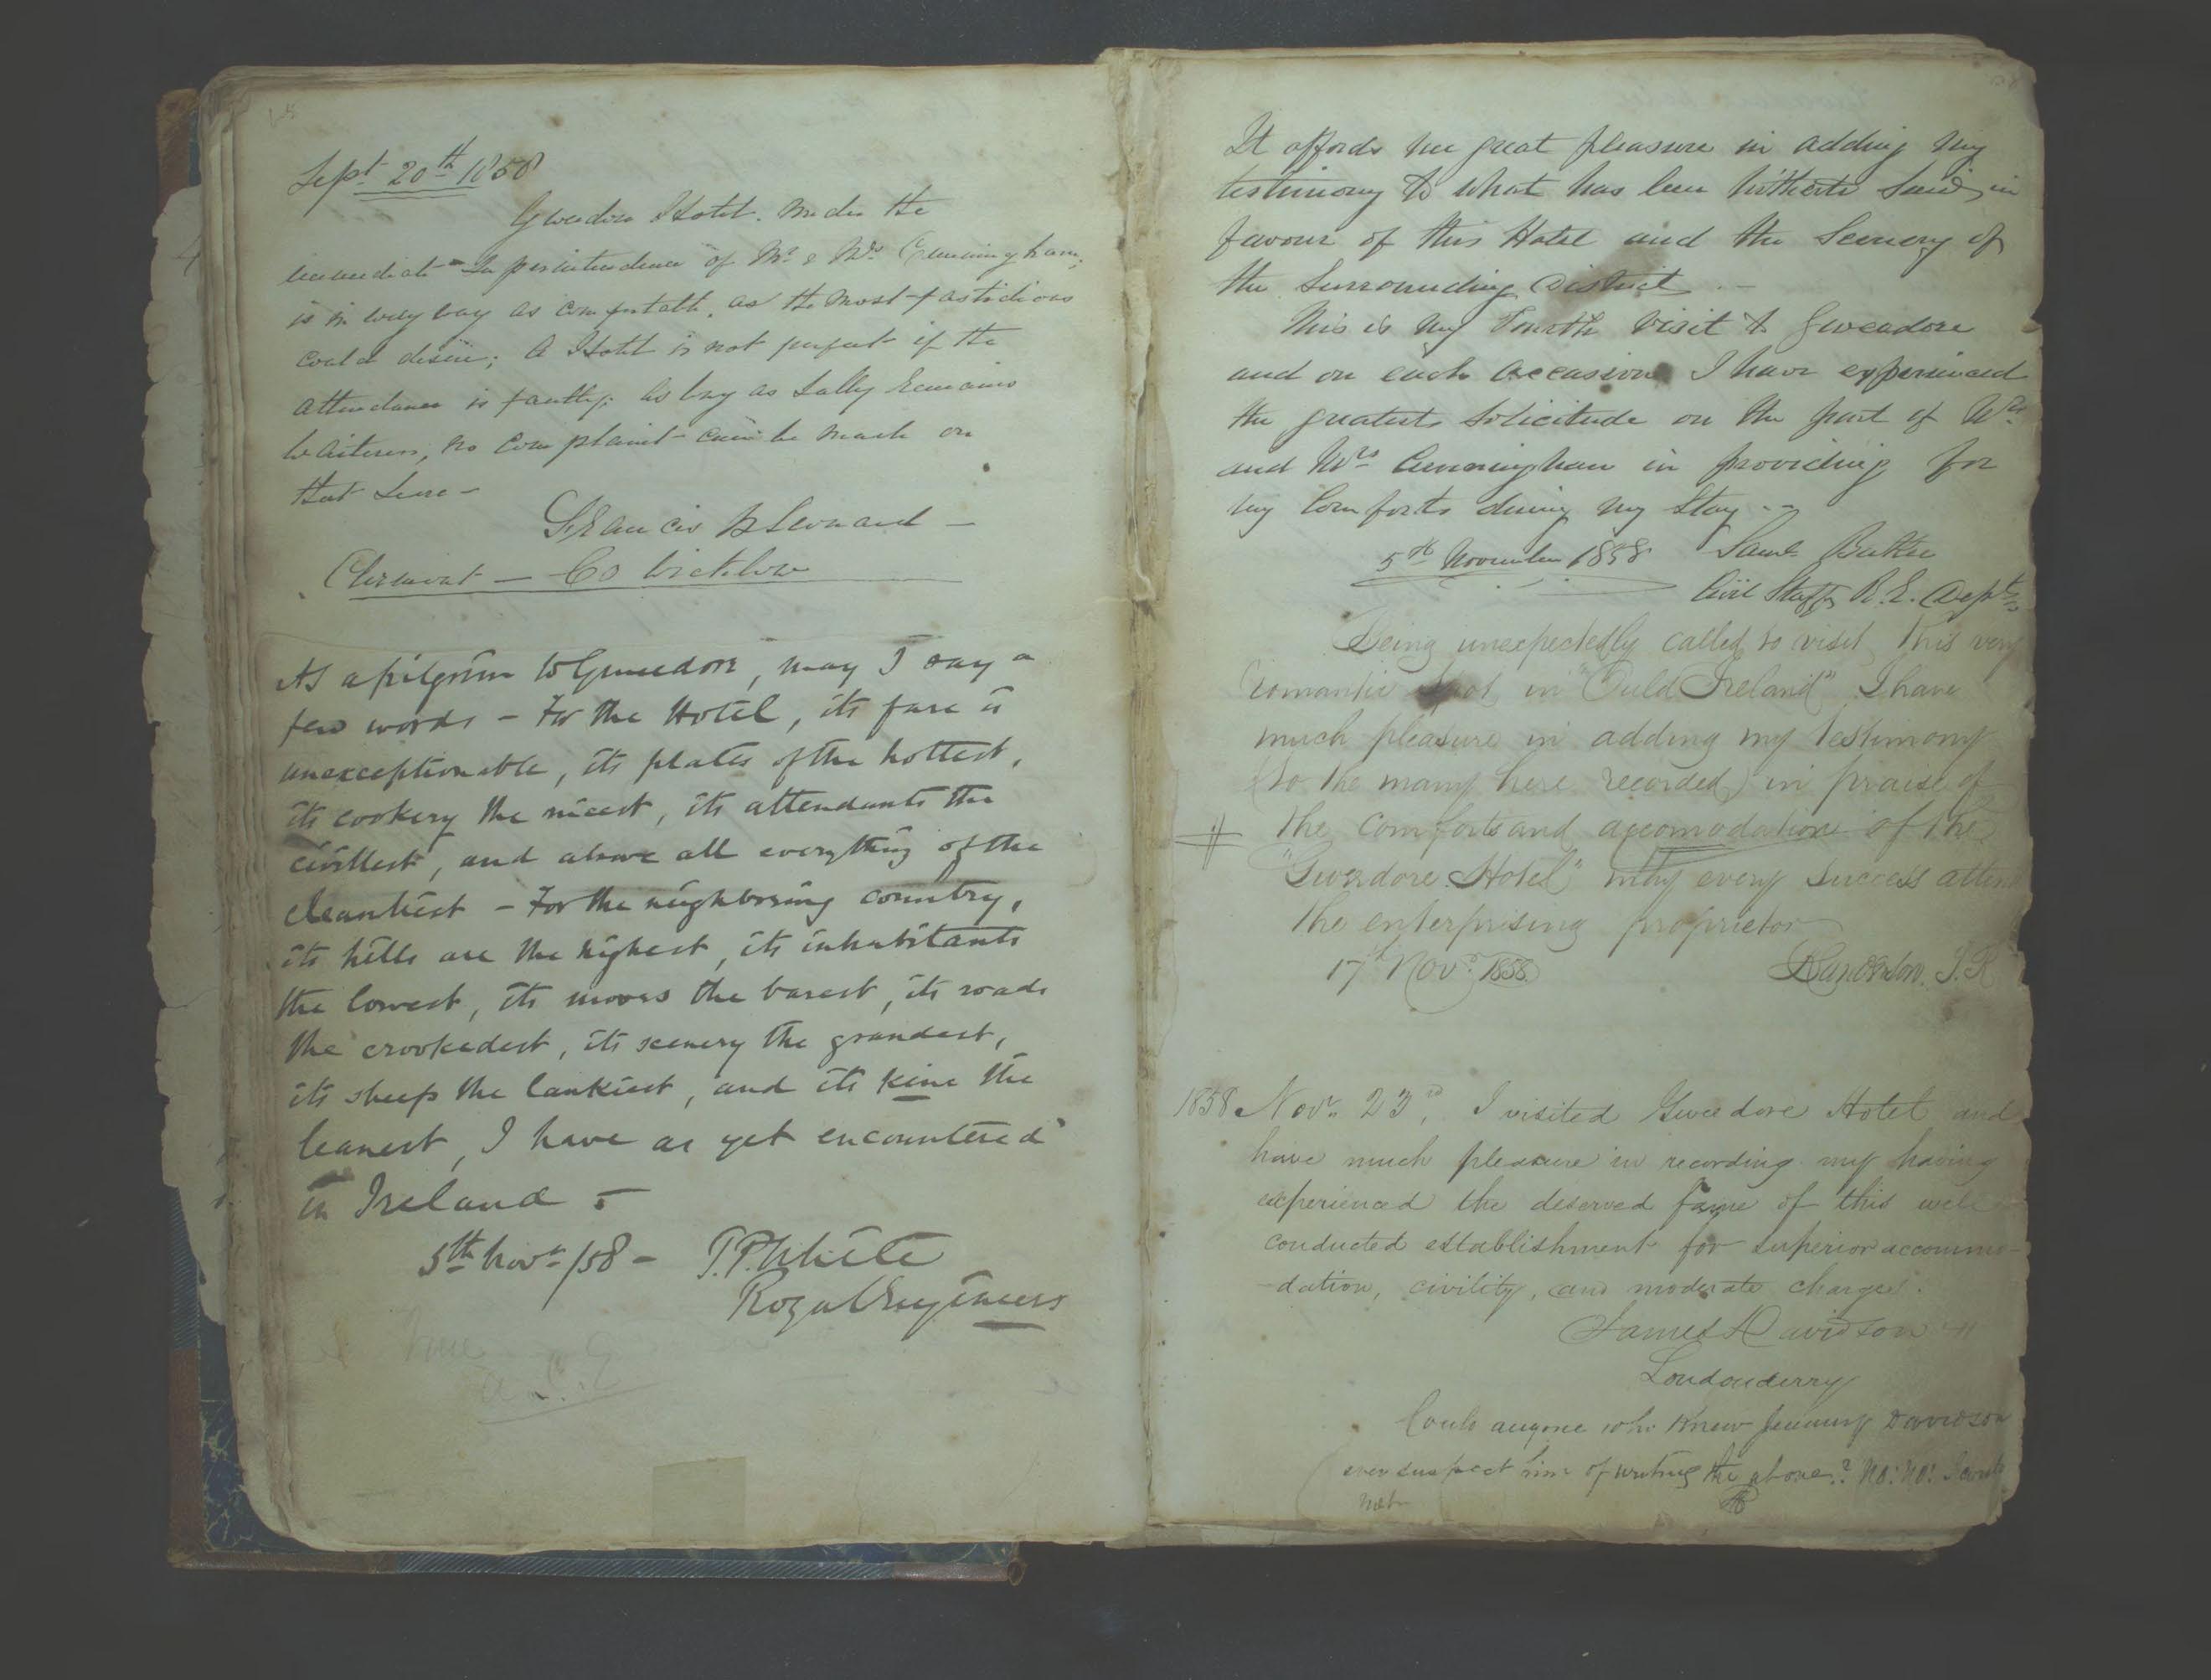 Sept 20th 1858
Gweedore Hotel. Under the
immediate Superintendence of Mr & Mrs Cunningham,
is in every way as comfortable, as the most fastidious
could desire; A Hotel is not perfect if the
attendance is faulty; as long as Sally remains
Waitress, no complaint can be made on
that Score –
Francis
Co Wicklow
As a pilgrim to Gweedore, may I say a
few words – For the Hotel, its fare is
unexceptionable, its plates of the hottest,
its cookery the nicest, its attendants the
civillest, and above all everything of the
cleanliest – For the neighboring country,
its hills are the highest, its inhabitants
the lowest, its moors the barest, its roads
the crookedest, its scenery the grandest,
its sheep the lankiest, and its kine the
leanest, I have as yet encountered
in Ireland –
5th Novr /58 – T.P. White
Royal Engineers
It affords me great pleasure in adding my
testimony to what has been hitherto said in
favour of this Hotel and the Scenery of
the Surrounding District. –
This is my Fourth Visit to Gweadore
and on each occasion I have experienced
the greatest Solicitude on the part of Mr
and Mrs Cunningham in providing for
my Comforts during my Stay. –
5th November 1858 Saml
Civil Staff R.E. Dept
Being unexpectedly called to visit this very
romantic spot in "Ould Ireland" I have
much pleasure in adding my testimony
(to the many here recorded) in praise of
# the comforts and accomodation of the
"Gweedore Hotel" may every success attend
the enterprising proprietor
17th Novr 1858.
1858 Novr. 23rd, I visited Gweedore Hotel and
have much pleasure in recording my having
experienced the deserved fame of this well
conducted establishment for superior accommo-
-dation, civility, and moderate charges.
James Davidson
Londonderry
Could anyone who knew Jemmy Davidson
ever suspect him of writing the above? No! No!